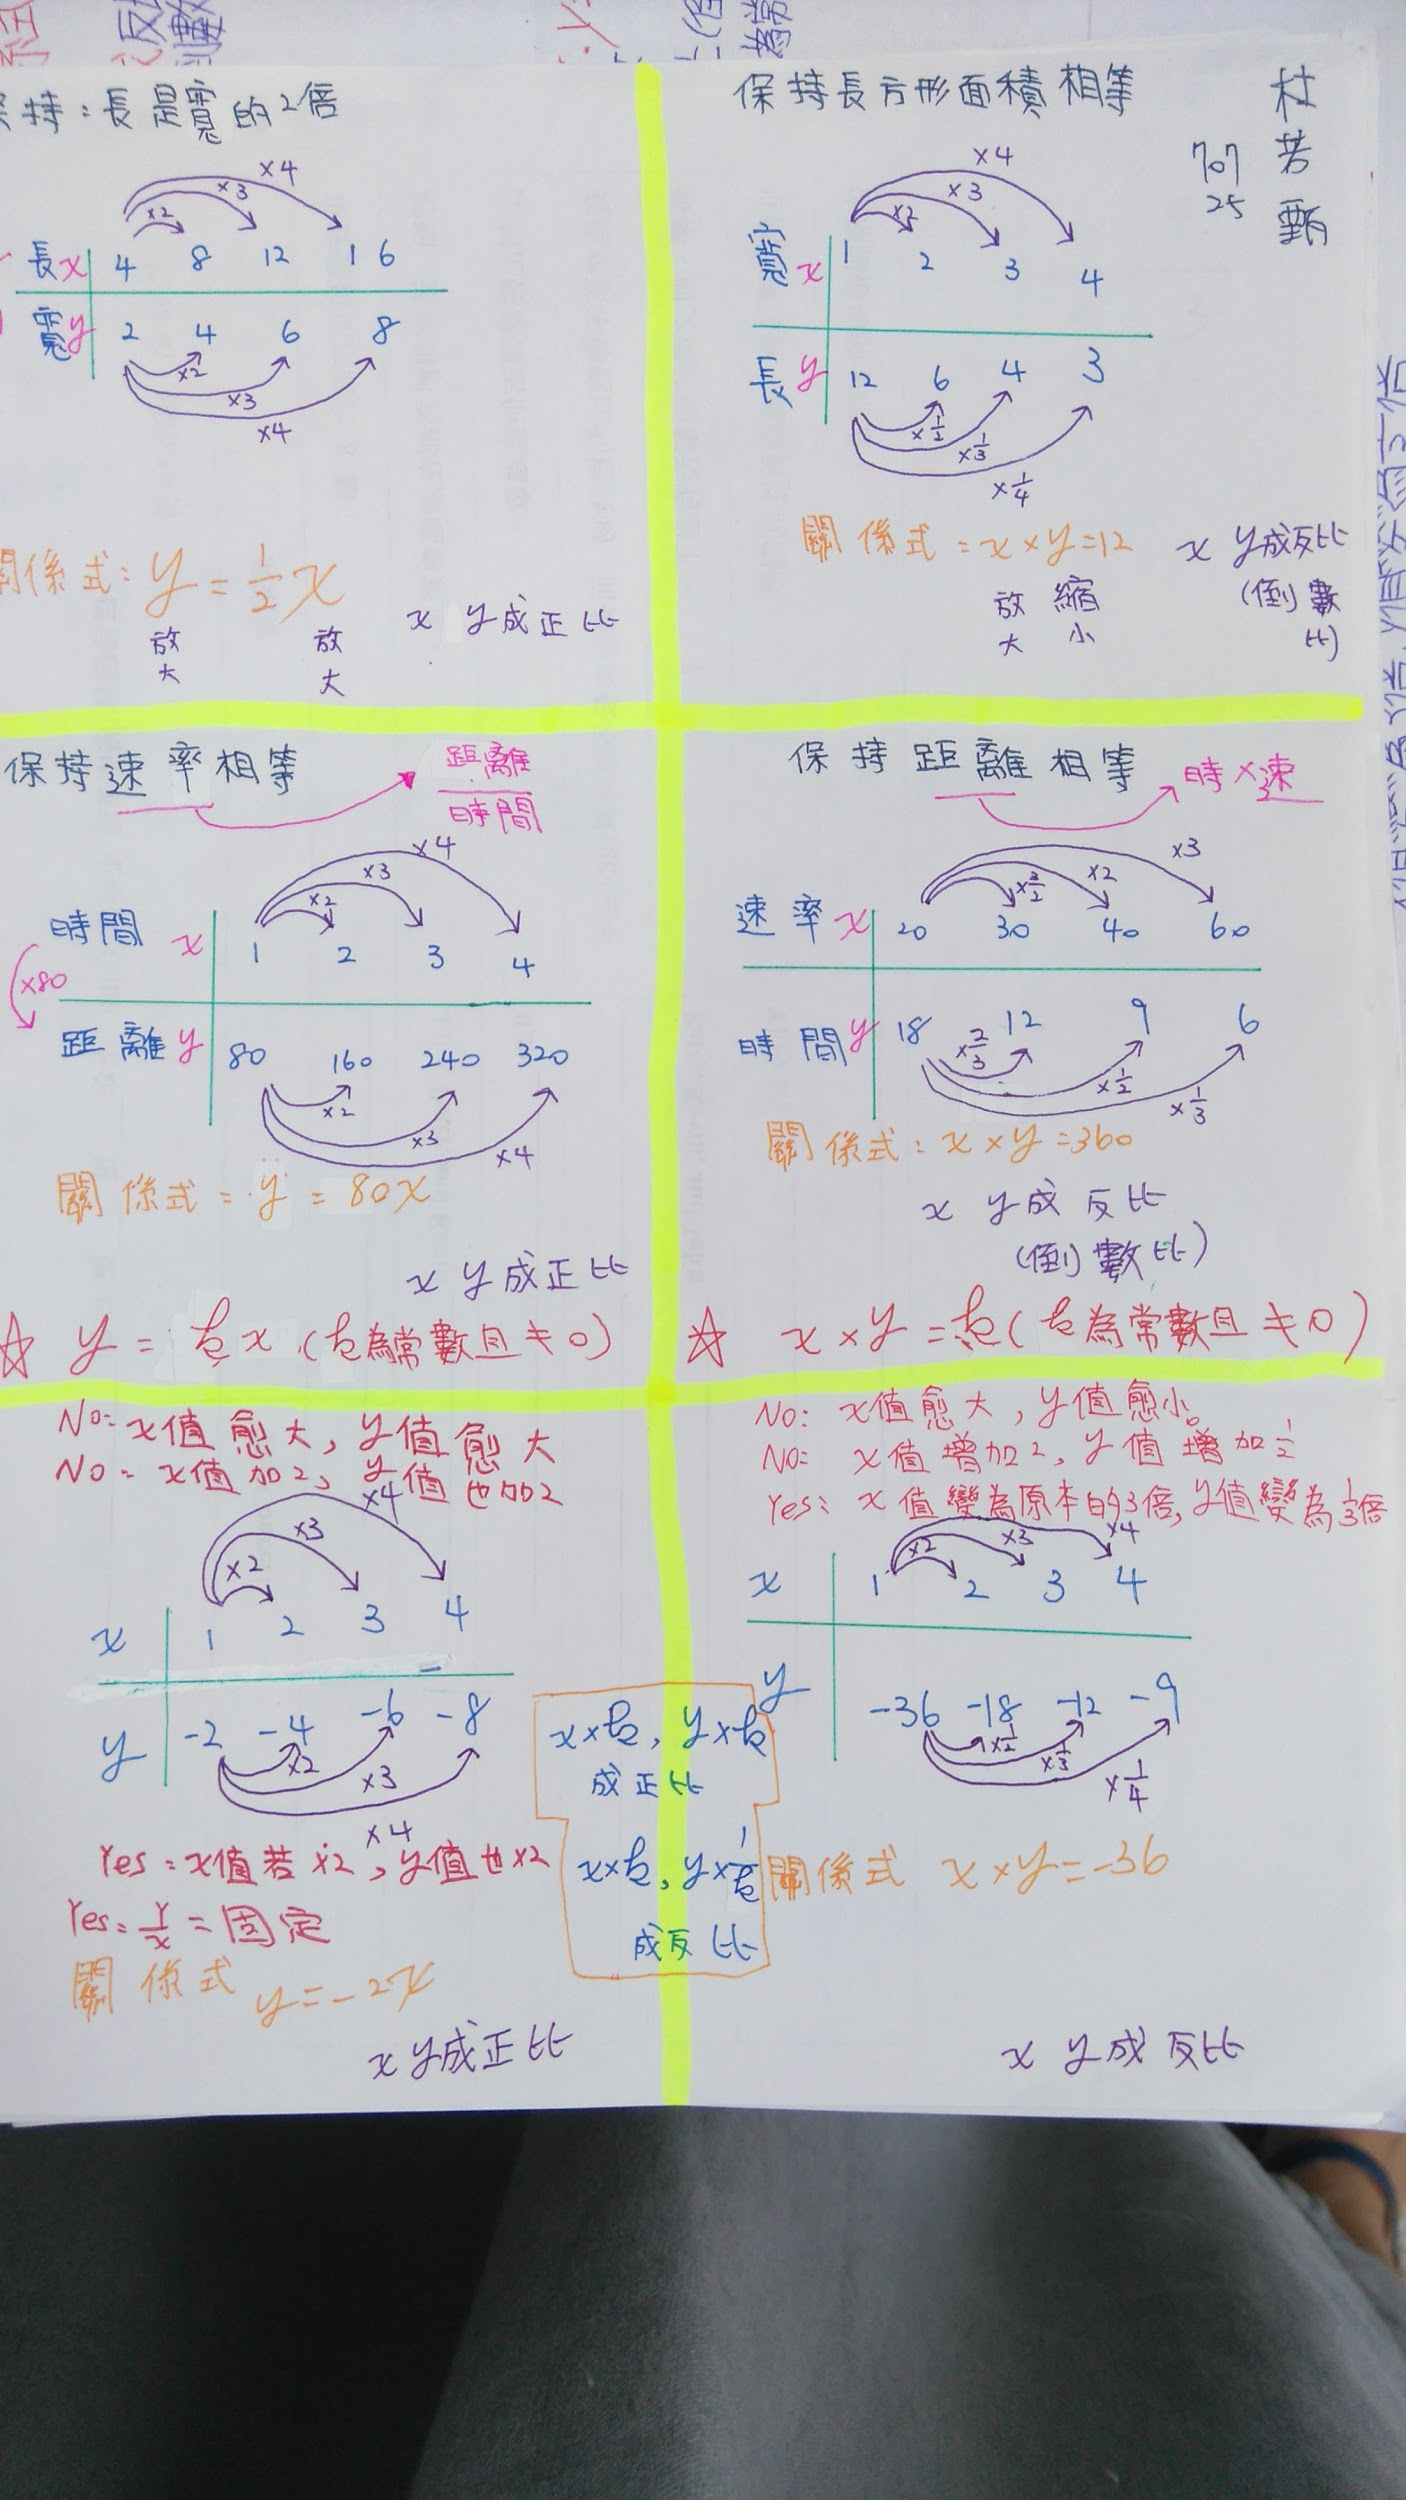 保持:長是寬的2倍
×4
×3
×2
長x 4 8 12 16
寬y 2 4 6 8
×2
×3
×4
關係式: y = 1/2 x
放大 放大
x y成正比
保持長方形面積相等
707
25
×4
×3
×2
寬x 1 2 3 4
長y 12 6 4 3
×1/2
×1/3
×1/4
關係式=x×y=12
放大 縮小
x y成反比
(倒數比)
保持速率相等
距離/時間
×4
×3
×2
時間 x 1 2 3 4
×80
距離y 80 160 240 320
×2
×3
×4
關係式=y=80x
x y成正比
☆ y=kx(k為常數且≠0)
保持距離相等
時×速
×3
×2
×3/2
速率x 20 30 40 60
時間y 18 12 9 6
×2/3
×1/2
×1/3
關係式:x×y=360
x y成反比
(倒數比)
☆ x×y=k(k為常數且≠0)
No:x值愈大,y值愈大
No=x值加2,y值也加2
×4
×3
×2
x 1 2 3 4
y -2 -4 -6 -8
×2
×3
×4
Yes:x值若×2,y值也×2
Yes:y/x=固定
關係式 y=-2x
x y成正比
x×k,y×k
成正比
x×k,y×1/k
成反比
No:x值愈大,y值愈小。
No:x值增加2,y值增加1/2
Yes:x值變為原本的3倍,y值變為1/3倍
×4
×3
×2
x 1 2 3 4
y -36 -18 -12 -9
×1/2
×1/3
×1/4
關係式 x×y=-36
x y成反比